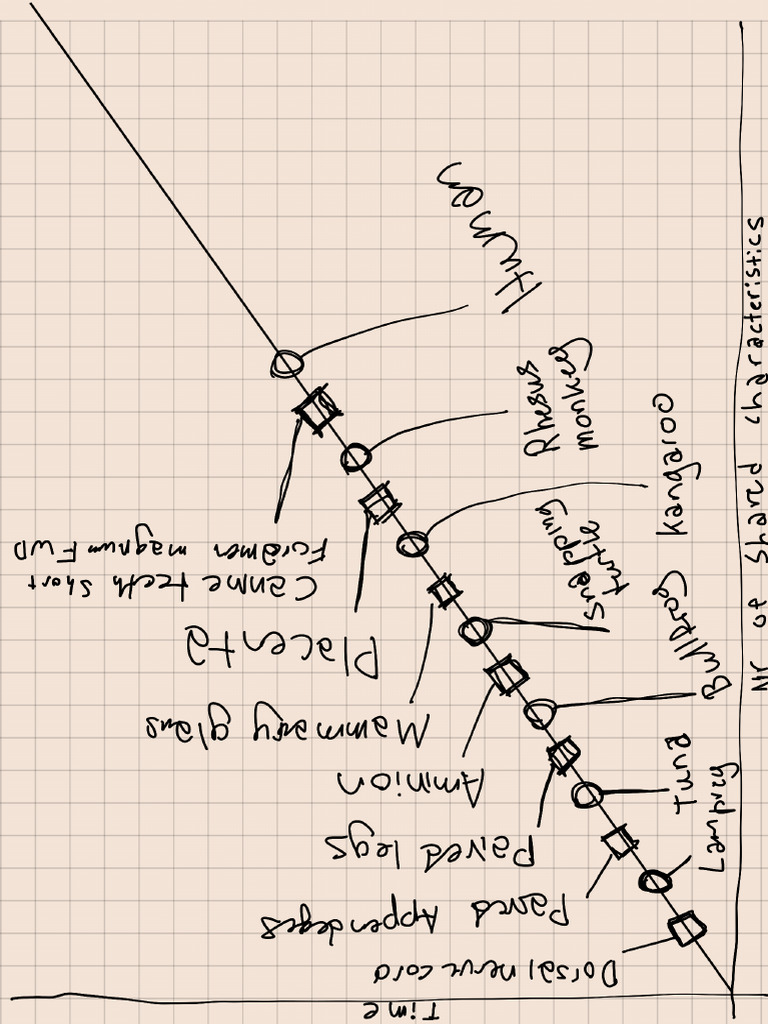 Human
Rhesus
monkey
Kangaroo
Snapping
turtle
Bullfrog
Tuna
Lamprey
Nr of Shared characteristics
Canine teeth short
Foramen magnum FWD
Placenta
Mammary glans
Aminion
Paired legs
Paired Appendeges
Dorsal nerve cord
Time